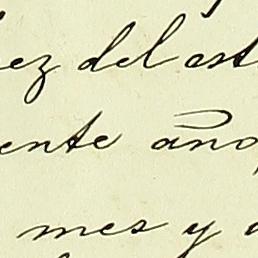 ez del est
ente año,
mes y